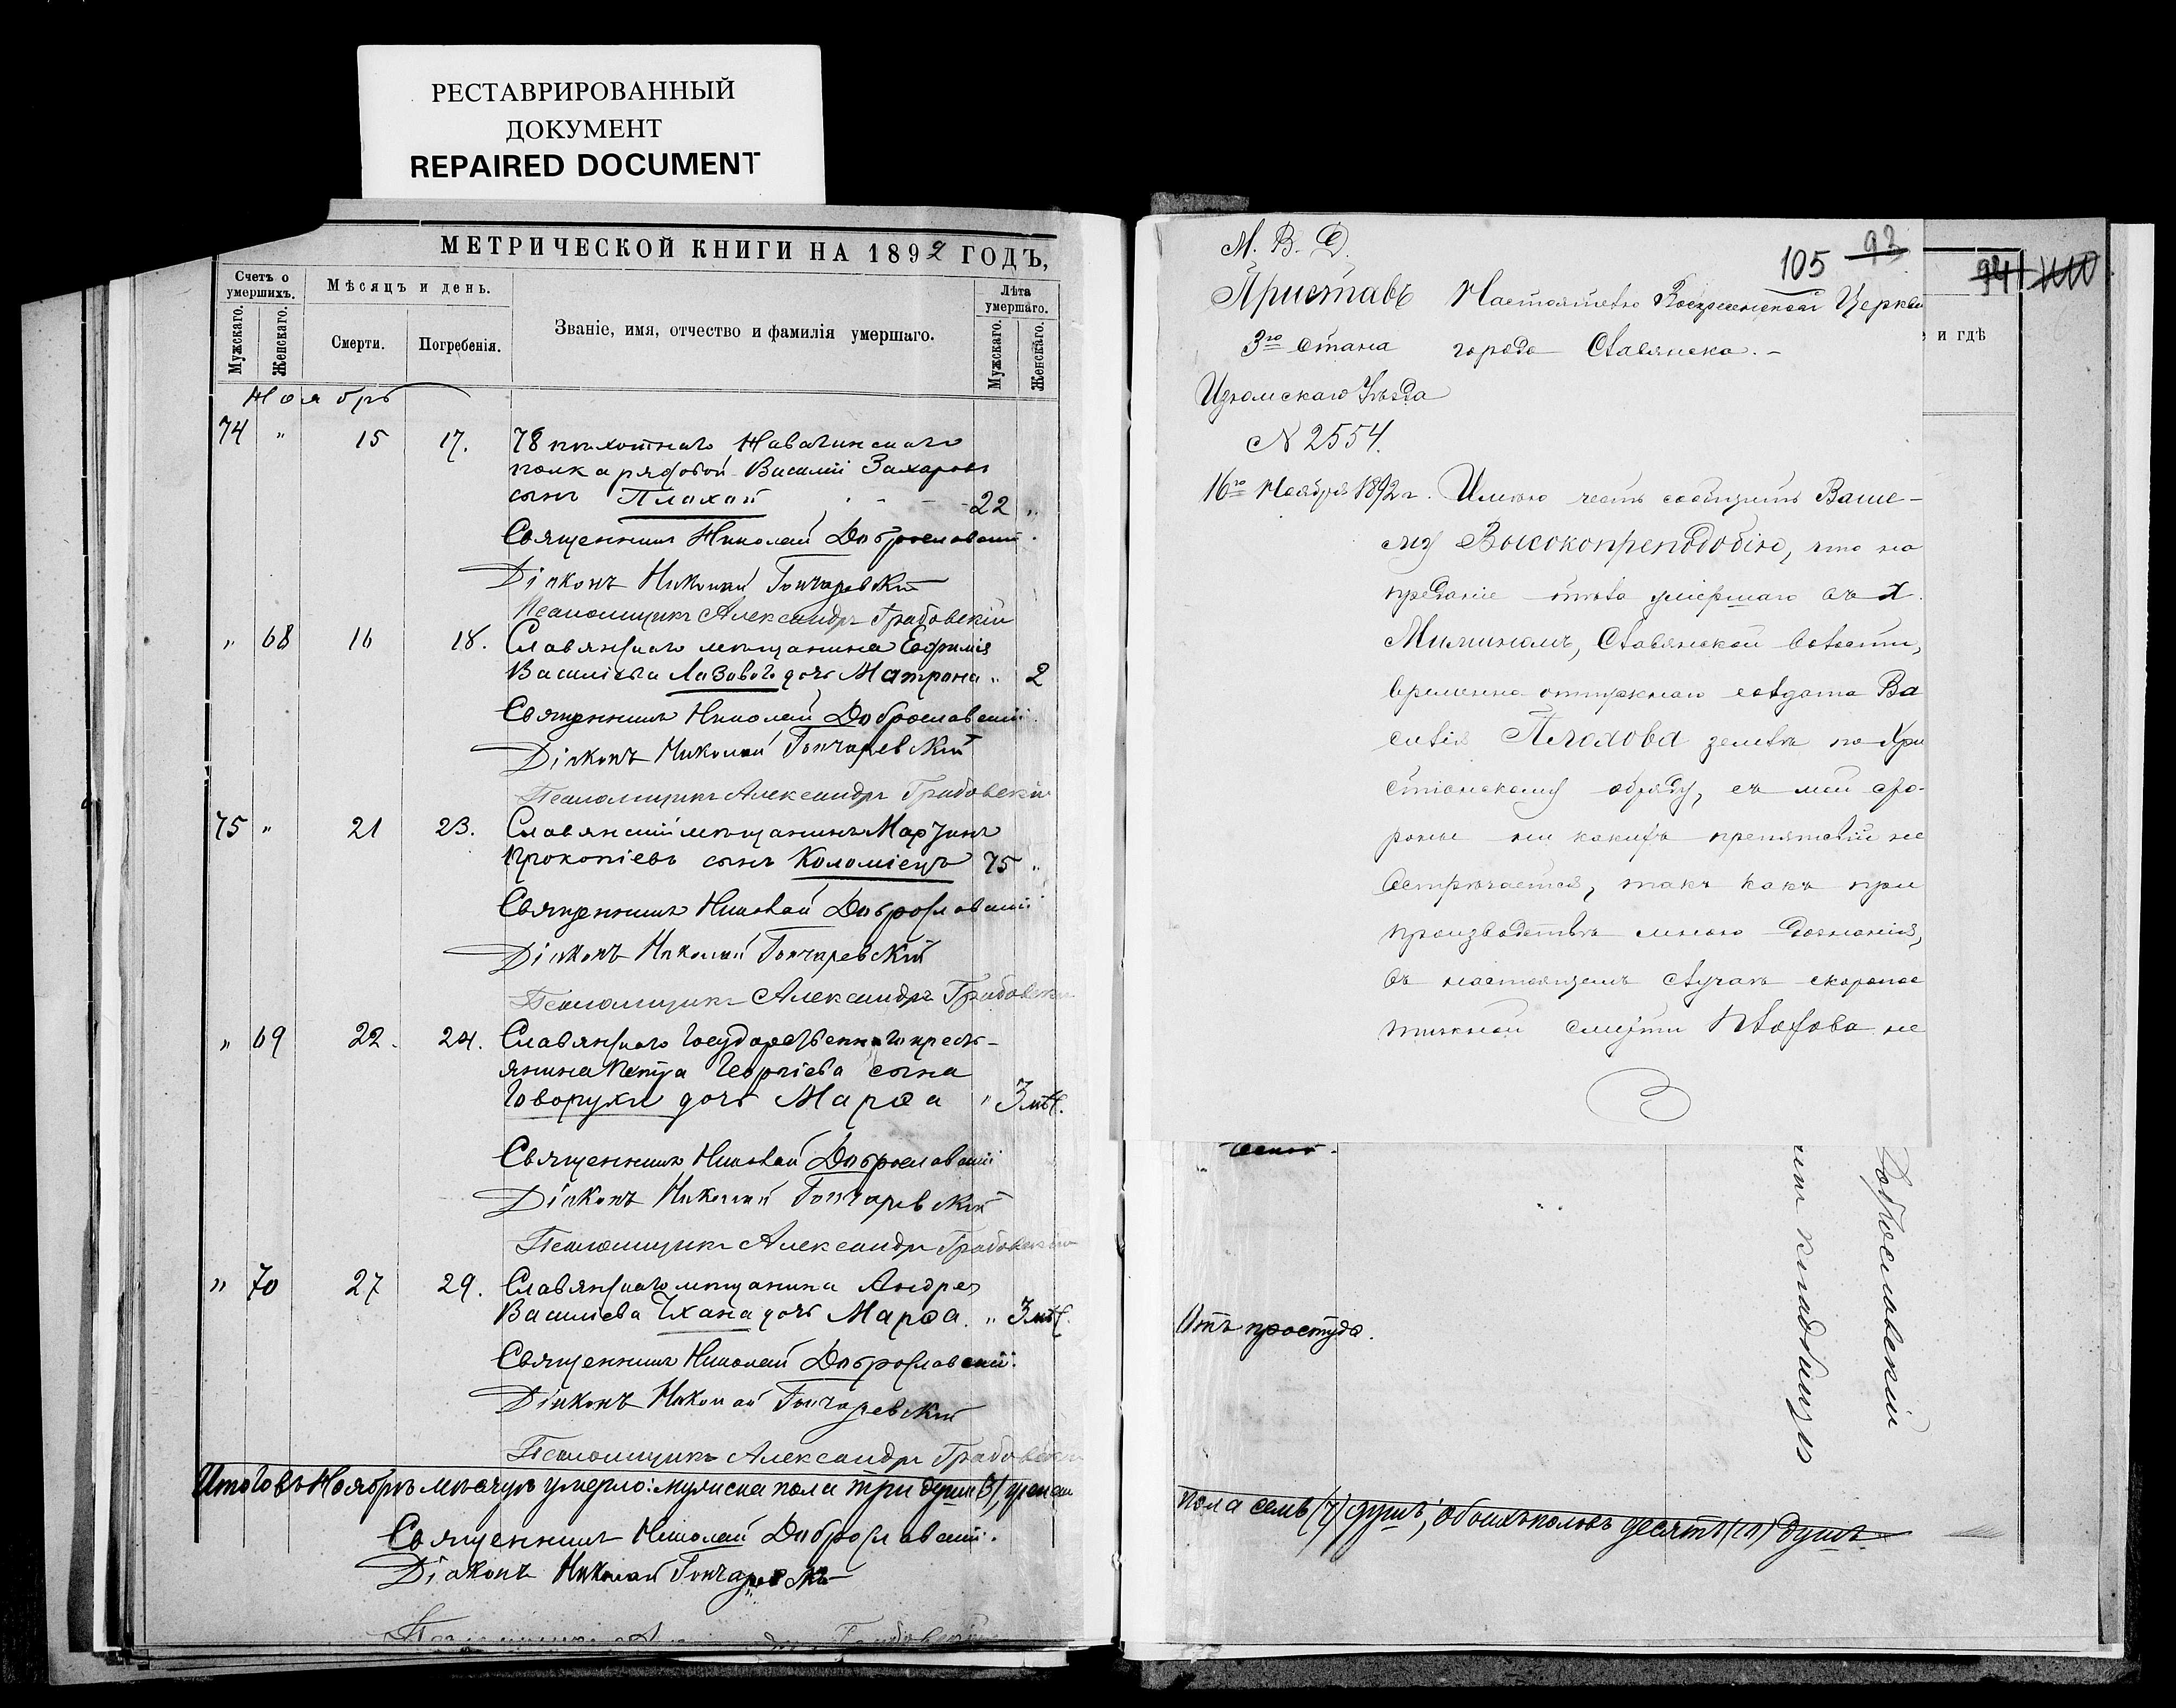 РЕСТАВРИРОВАННЫЙ
ДОКУМЕНТ
REPAIRED DOCUMENT
МЕТРИЧЕСКОЙ КНИГИ НА 1892 ГОДЪ,
Счетъ о умершихъ.
Мужскаго.
Женскаго.
Мѣсяцъ и день.
Смерти.
Погребенія.
Званіе, имя, отчество и фамилія умершаго.
Лѣта умершаго.
Мужскаго.
Женскаго.
Ноябрь
74 " 15 17. 78 пѣхотнаго Навагинскаго
полка рядовой Василій Захаровъ
сынъ Плохой 22 "
Священникъ Николай Доброславскій.
Діаконъ Николай Гончаревскій
Псаломщикъ Александръ Грабовскій
" 68 16 18. Славянскаго мѣщанина Ефимія
Василіева Лазоваго дочь Матрона " 2
Священникъ Николай Доброславскій.
Діаконъ Николай Гончаревскій
Псаломщикъ Александръ Грабовскій
75 " 21 23. Славянскій мѣщанинъ
Прокопіевъ сынъ Коломіецъ 75 "
Священникъ Николай Доброславскій
Діаконъ Николай Гончаревскій
Псаломщикъ Александръ Грабовскій
" 69 22. 24. Славянскаго Государственнаго кресть-
янина Петра Георгіева сына
Говорухи дочь Марѳа " 3 мѣс.
Священникъ Николай Доброславскій
Діаконъ Николай Гончаревскій
Псаломщикъ Александръ Грабовскій
" 70 27 29. Славянскаго мѣщанина Андрея
Василіева Чхана дочь Марѳа. " 3 мѣс.
Священникъ Николай Доброславскій.
Діаконъ Николай Гончаревскій
Псаломщикъ Александръ Грабовскій
Итого въ Ноябрѣ мѣсяцѣ умерло: мужска пола три души (3), женска
Священникъ Николай Доброславскій.
Діаконъ Николай Гончаревскій
Псаломщикъ Александръ Грабовскій
М. В. Д.
105 93
94
Приставъ
3го Стана
Изюмскаго Уѣзда
N 2554.
16го Ноября 1892 г.
Настоятелю Воскресенской Церкви
города Славянска.-
Имѣю честь сообщить Ваше-
му Высокопреподобію, что на
преданіе тѣла умершаго въ х.
Славянской волости,
временно отпускного солдата Ва
силія Плохова землѣ по Хри
стіанскому обряду, съ моей сто-
роны ни какихъ препятствій не
встрѣчается, такъ какъ при
производствѣ мною дознанія,
въ настоящемъ случаѣ скоропос
тижной смерти Плохова не
и гдѣ
Отъ простуды.
Доброславскій
кладбищѣ
пола семь (7) душъ, обоихъ половъ десять (10) душъ.